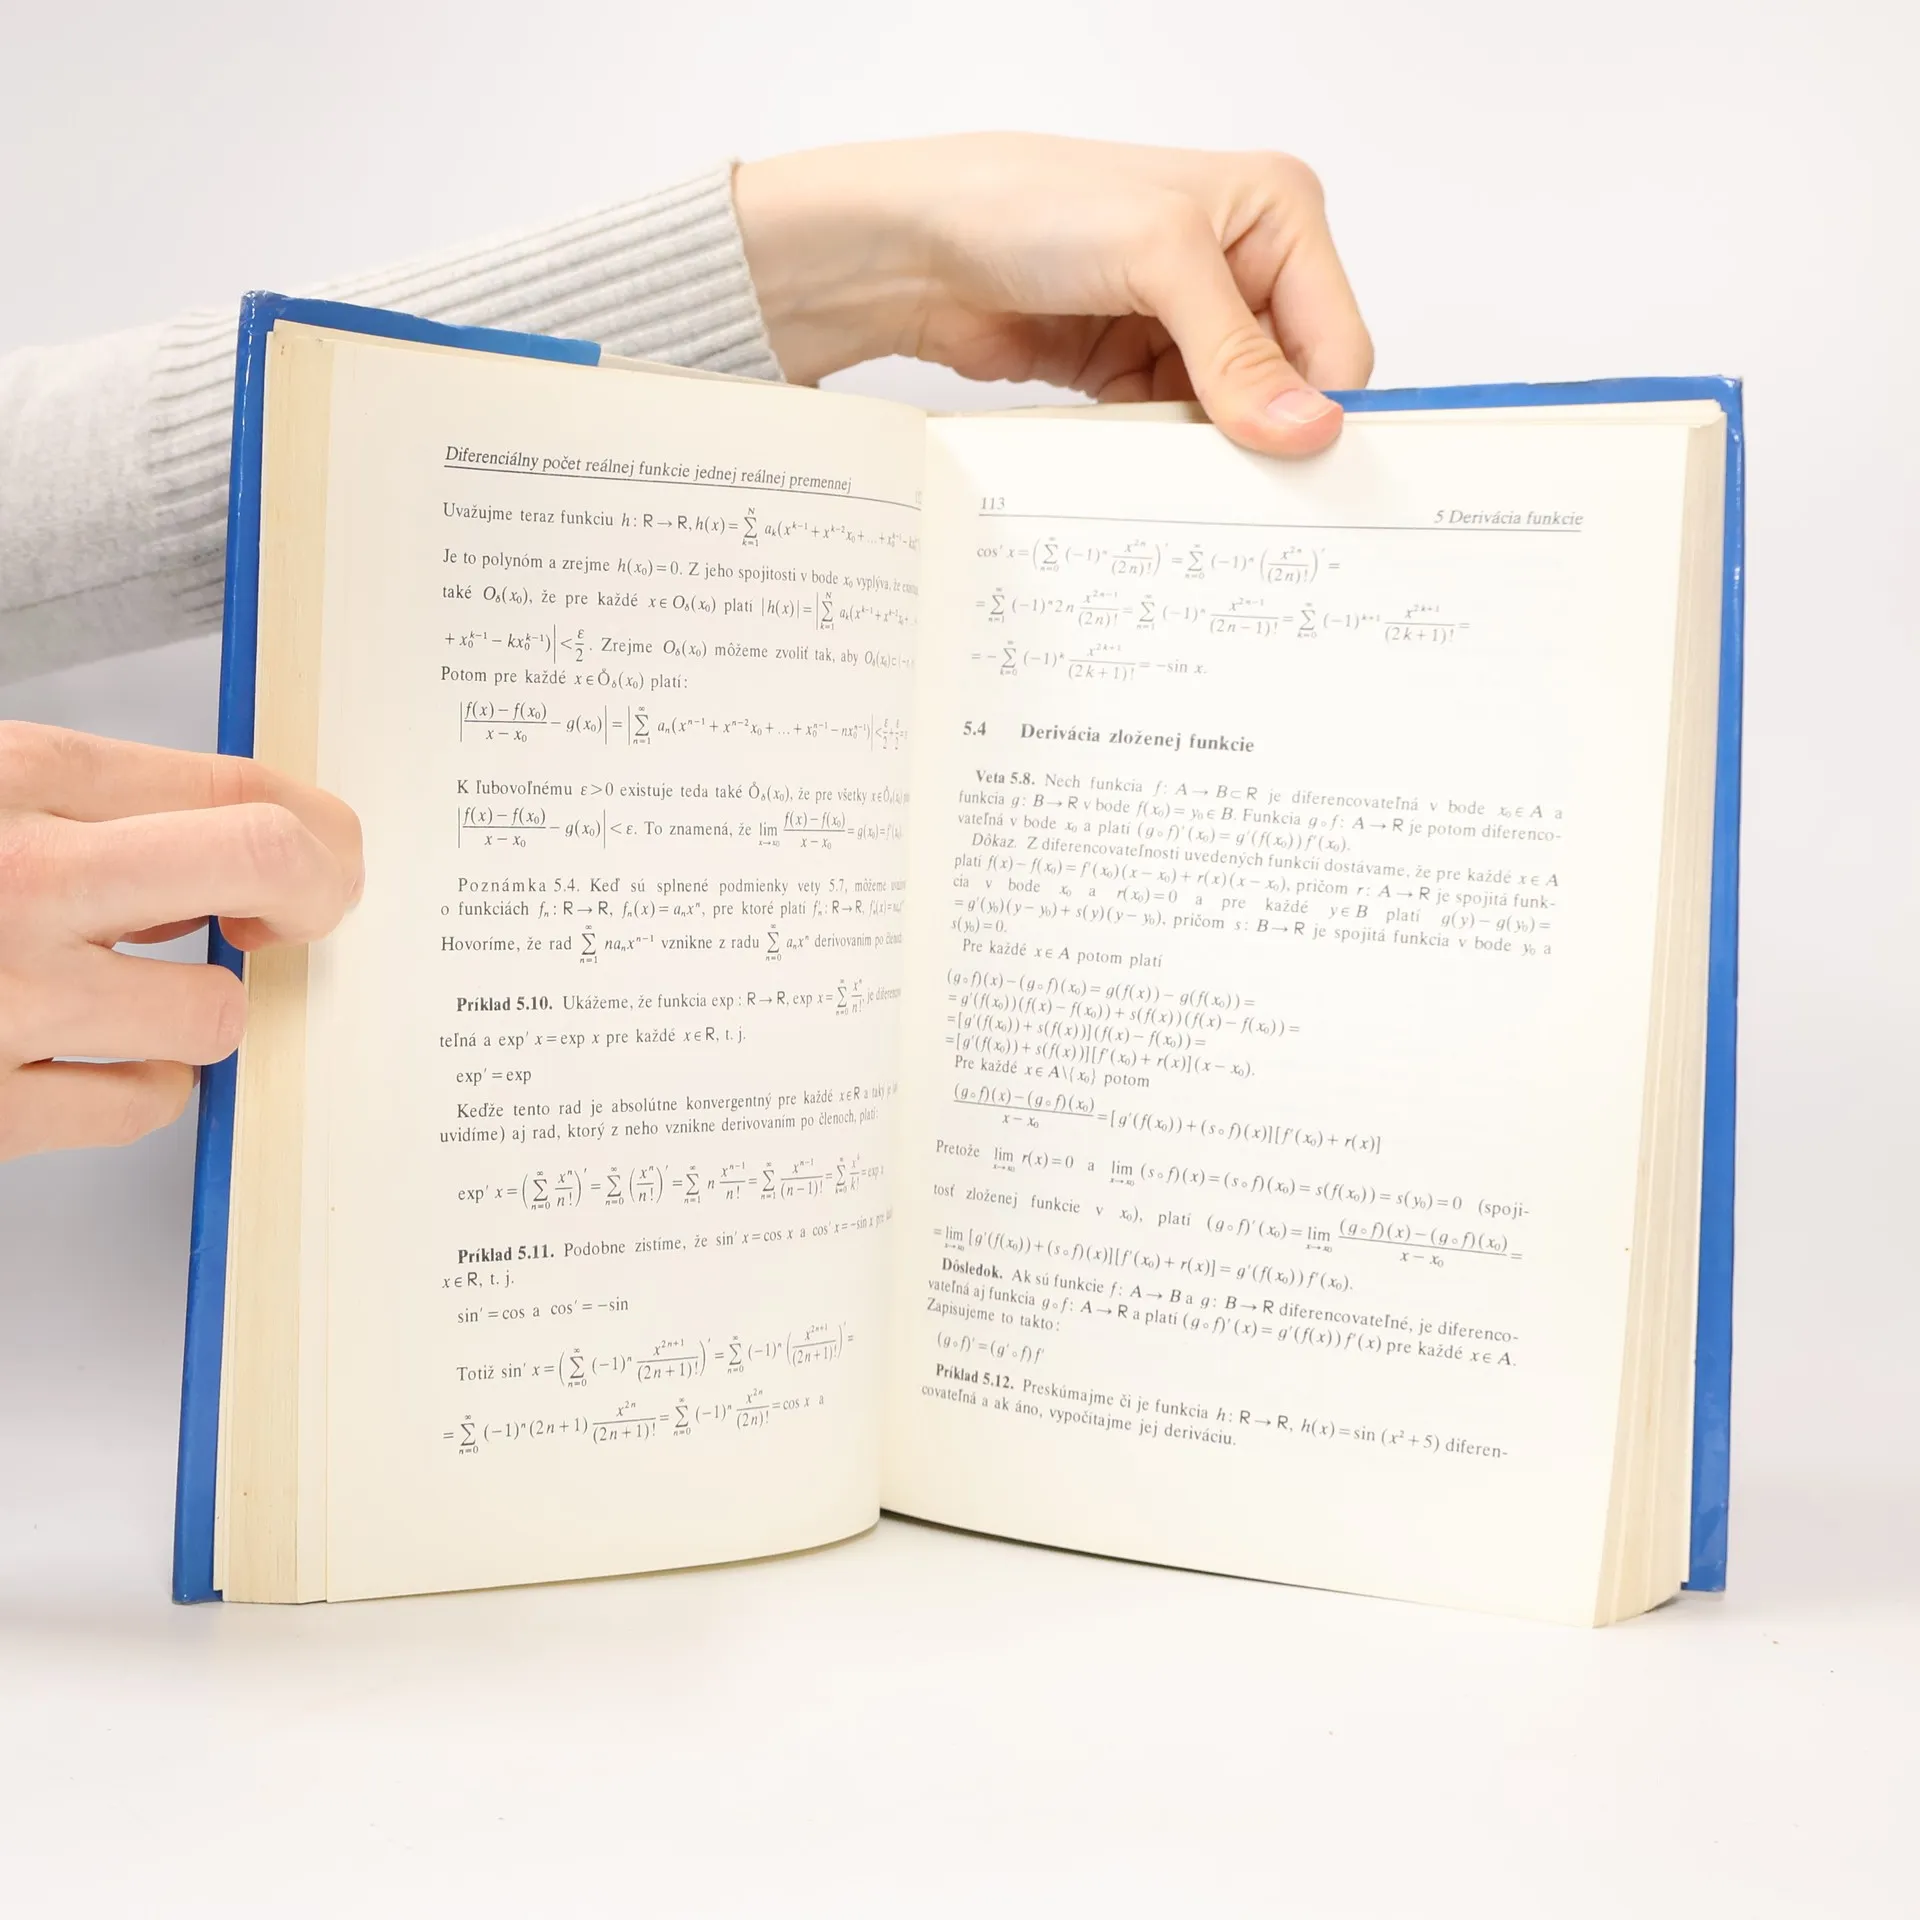 Diferenciálny počet reálnej funkcie jednej reálnej premennej
Uvažujme teraz funkciu h: R → R, h(x) = ∑_{k=1}^{N} a_k(x^{k−1} + x^{k−2}x_0 + ... + x_0^{k−1} −
Je to polynóm a zrejme h(x_0) = 0. Z jeho spojitosti v bode x_0 vyplýva, že
také O_δ(x_0), že pre každé x ∈ O_δ(x_0) platí |h(x)| = |∑_{k=1}^{N} a_k(x^{k−1} + x^{k−2}x_0 + ...
+ x_0^{k−1} − kx_0^{k−1})| < ε/2. Zrejme O_δ(x_0) môžeme zvoliť tak, aby O_δ(x_0) ⊂
Potom pre každé x ∈ Ǒ_δ(x_0) platí:
|(f(x) − f(x_0))/(x − x_0) − g(x_0)| = |∑_{n=1}^{∞} a_n(x^{n−1} + x^{n−2}x_0 + ... + x_0^{n−1} − nx_0^{n−1})| < ε/2 + ε/2 = ε
K ľubovoľnému ε > 0 existuje teda také Ǒ_δ(x_0), že pre všetky x ∈ Ǒ_δ(x_0)
|(f(x) − f(x_0))/(x − x_0) − g(x_0)| < ε. To znamená, že lim_{x→x_0} (f(x) − f(x_0))/(x − x_0) = g(x_0) = f'(x_0).
Poznámka 5.4. Keď sú splnené podmienky vety 5.7, môžeme
o funkciách f_n: R → R, f_n(x) = a_n x^n, pre ktoré platí f'_n: R → R,
Hovoríme, že rad ∑_{n=1}^{∞} na_n x^{n−1} vznikne z radu ∑_{n=0}^{∞} a_n x^n derivovaním po členoch
Príklad 5.10. Ukážeme, že funkcia exp: R → R, exp x = ∑_{n=0}^{∞} x^n/n!, je diferenco-
teľná a exp' x = exp x pre každé x ∈ R, t. j.
exp' = exp
Keďže tento rad je absolútne konvergentný pre každé x ∈ R a taký je
uvidíme) aj rad, ktorý z neho vznikne derivovaním po členoch, platí:
exp' x = (∑_{n=0}^{∞} x^n/n!)' = ∑_{n=0}^{∞} (x^n/n!)' = ∑_{n=1}^{∞} n x^{n−1}/n! = ∑_{n=1}^{∞} x^{n−1}/(n−1)! = ∑_{k=0}^{∞} x^k/k! = exp x
Príklad 5.11. Podobne zistíme, že sin' x = cos x a cos' x = −sin x pre
x ∈ R, t. j.
sin' = cos a cos' = −sin
Totiž sin' x = (∑_{n=0}^{∞} (−1)^n x^{2n+1}/(2n+1)!)' = ∑_{n=0}^{∞} (−1)^n (x^{2n+1}/(2n+1)!)' =
= ∑_{n=0}^{∞} (−1)^n (2n+1) x^{2n}/(2n+1)! = ∑_{n=0}^{∞} (−1)^n x^{2n}/(2n)! = cos x a
113 5 Derivácia funkcie
cos' x = (∑_{n=0}^{∞} (−1)^n x^{2n}/(2n)!)' = ∑_{n=0}^{∞} (−1)^n (x^{2n}/(2n)!)' =
= ∑_{n=1}^{∞} (−1)^n 2n x^{2n−1}/(2n)! = ∑_{n=1}^{∞} (−1)^n x^{2n−1}/(2n−1)! = ∑_{k=0}^{∞} (−1)^{k+1} x^{2k+1}/(2k+1)! =
= −∑_{k=0}^{∞} (−1)^k x^{2k+1}/(2k+1)! = −sin x.
5.4 Derivácia zloženej funkcie
Veta 5.8. Nech funkcia f: A → B ⊂ R je diferencovateľná v bode x_0 ∈ A a
funkcia g: B → R v bode f(x_0) = y_0 ∈ B. Funkcia g∘f: A → R je potom diferenco-
vateľná v bode x_0 a platí (g∘f)'(x_0) = g'(f(x_0))f'(x_0).
Dôkaz. Z diferencovateľnosti uvedených funkcií dostávame, že pre každé x ∈ A
platí f(x) − f(x_0) = f'(x_0)(x − x_0) + r(x)(x − x_0), pričom r: A → R je spojitá funk-
cia v bode x_0 a r(x_0) = 0 a pre každé y ∈ B platí g(y) − g(y_0) =
= g'(y_0)(y − y_0) + s(y)(y − y_0), pričom s: B → R je spojitá funkcia v bode y_0 a
s(y_0) = 0.
Pre každé x ∈ A potom platí
(g∘f)(x) − (g∘f)(x_0) = g(f(x)) − g(f(x_0)) =
= g'(f(x_0))(f(x) − f(x_0)) + s(f(x))(f(x) − f(x_0)) =
= [g'(f(x_0)) + s(f(x))](f(x) − f(x_0)) =
= [g'(f(x_0)) + s(f(x))][f'(x_0) + r(x)](x − x_0).
Pre každé x ∈ A\{x_0} potom
((g∘f)(x) − (g∘f)(x_0))/(x − x_0) = [g'(f(x_0)) + (s∘f)(x)][f'(x_0) + r(x)]
Pretože lim_{x→x_0} r(x) = 0 a lim_{x→x_0} (s∘f)(x) = (s∘f)(x_0) = s(f(x_0)) = s(y_0) = 0 (spoji-
tosť zloženej funkcie v x_0), platí (g∘f)'(x_0) = lim_{x→x_0} ((g∘f)(x) − (g∘f)(x_0))/(x − x_0) =
= lim_{x→x_0} [g'(f(x_0)) + (s∘f)(x)][f'(x_0) + r(x)] = g'(f(x_0))f'(x_0).
Dôsledok. Ak sú funkcie f: A → B a g: B → R diferencovateľné, je diferenco-
vateľná aj funkcia g∘f: A → R a platí (g∘f)'(x) = g'(f(x))f'(x) pre každé x ∈ A.
Zapisujeme to takto:
(g∘f)' = (g'∘f)f'
Príklad 5.12. Preskúmajme či je funkcia h: R → R, h(x) = sin (x² + 5) diferen-
covateľná a ak áno, vypočítajme jej deriváciu.